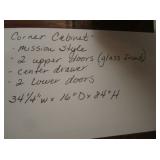 Corner Cabinet -
• mission style
• 2 upper doors (glass fronts)
• center drawer
• 2 lower doors
34 1/4" W x 16" D x 84" H